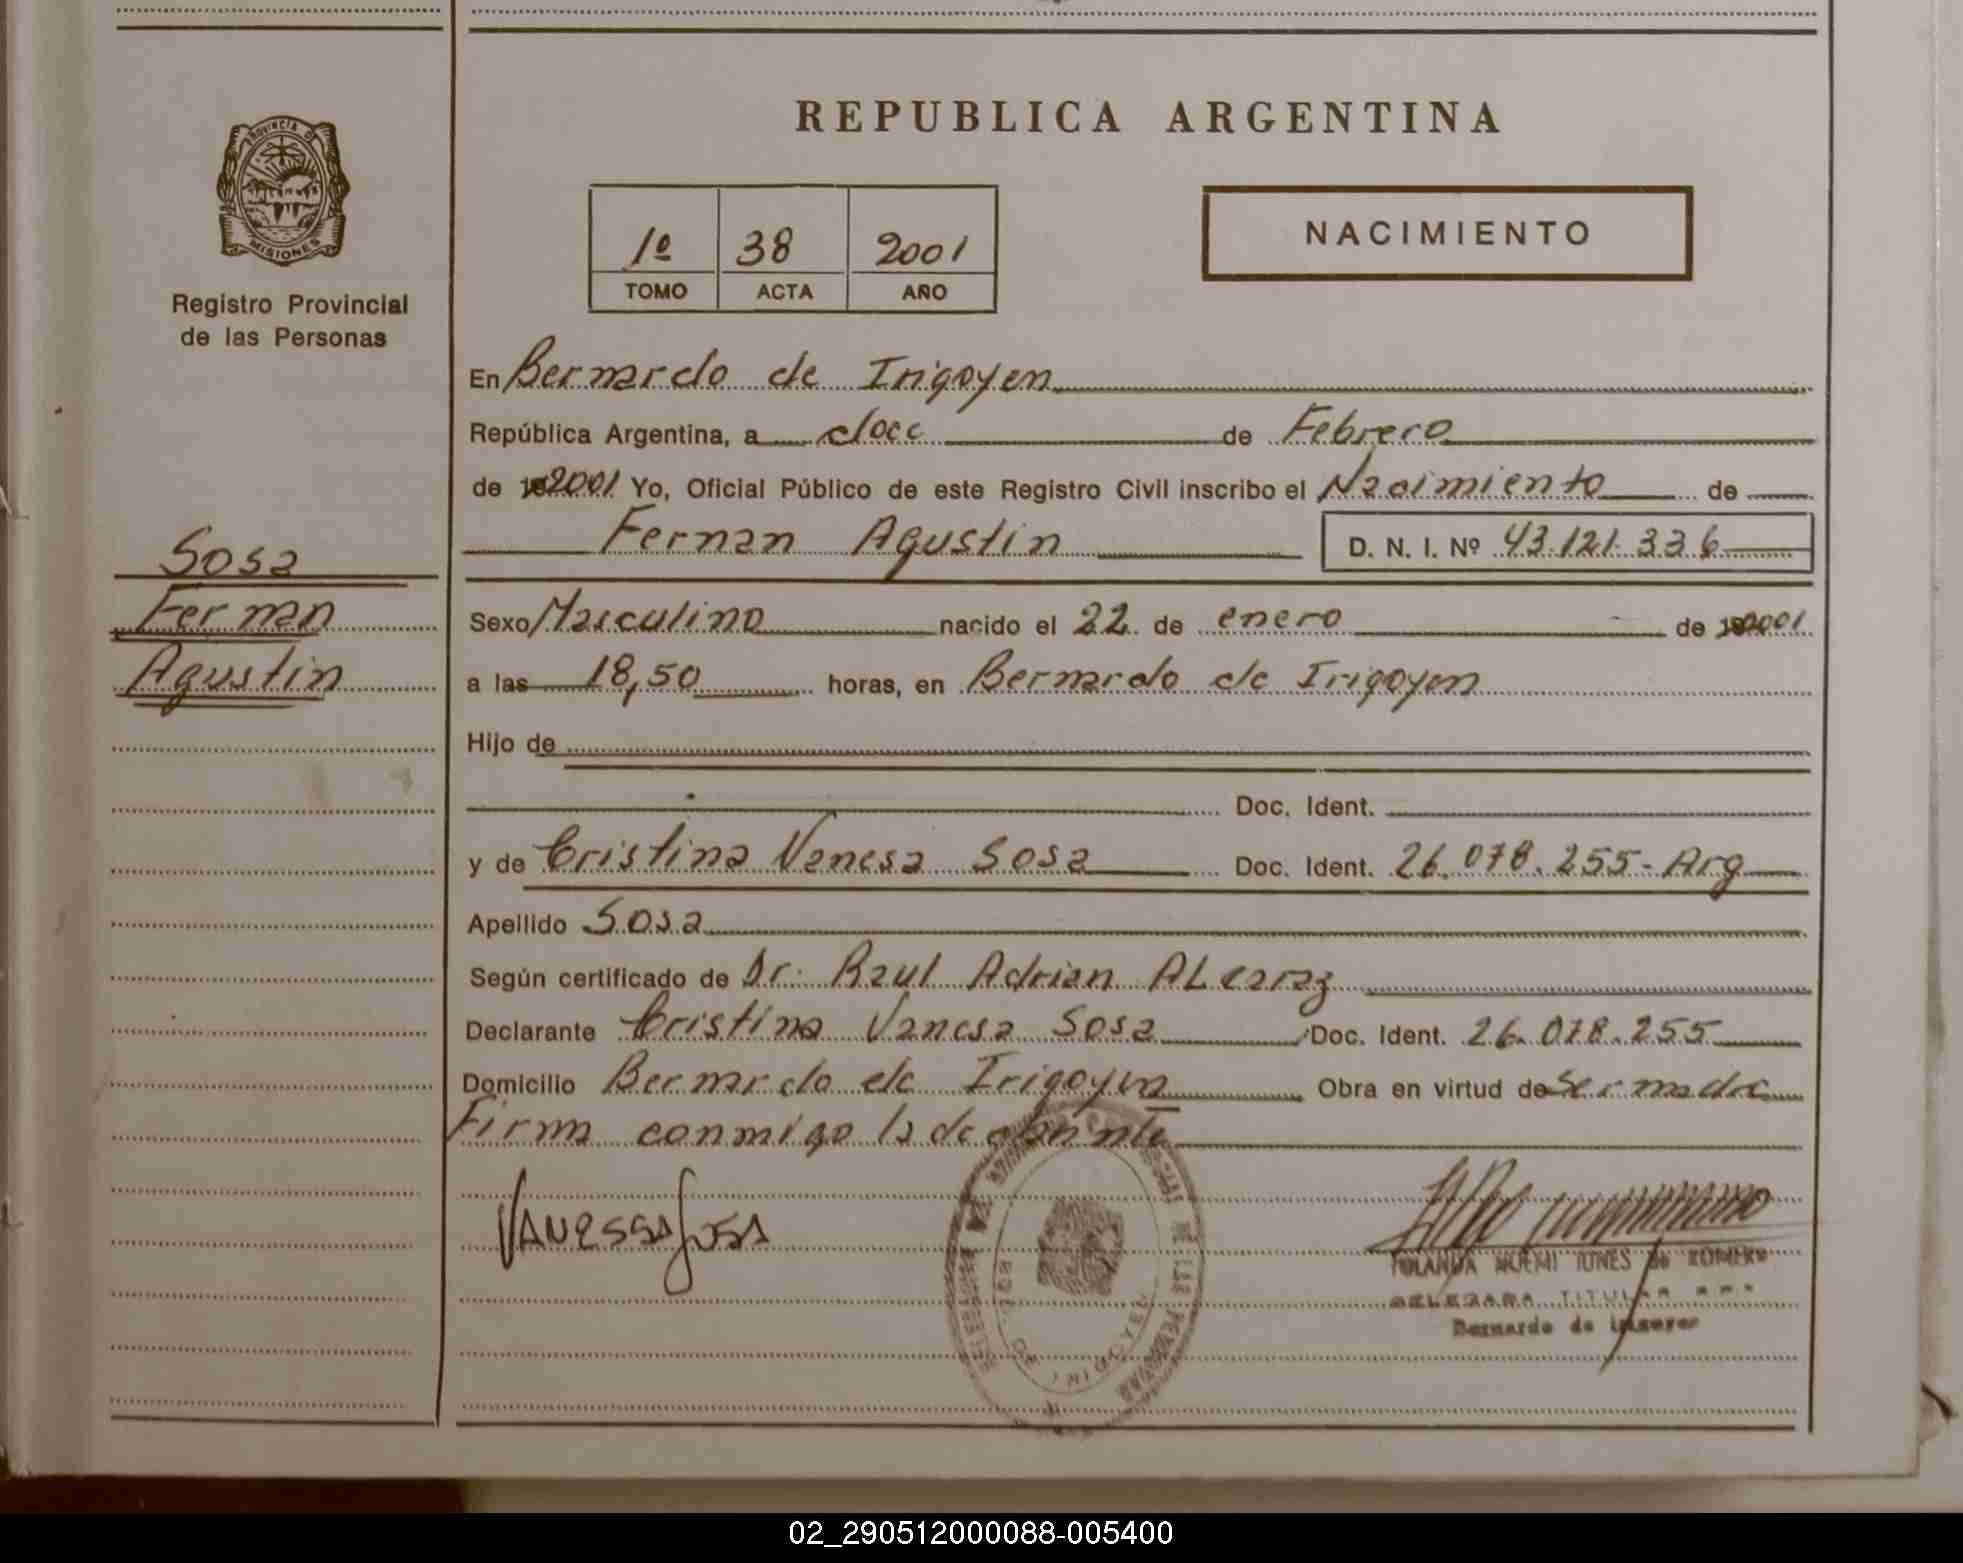 REPUBLICA ARGENTINA
PROVINCIA DE
MISIONES
Registro Provincial
de las Personas
1º 38 2001
TOMO ACTA AÑO
NACIMIENTO
En Bernardo de Irigoyen
República Argentina, a doce de Febrero
de 2001 Yo, Oficial Público de este Registro Civil inscribo el Nacimiento de
Fernan Agustin D. N. I. Nº 43.121.336
Sosa
Fernan
Agustin
Sexo Masculino nacido el 22 de enero de 2001
a las 18,50 horas, en Bernardo de Irigoyen
Hijo de
Doc. Ident.
y de Cristina Vanesa Sosa Doc. Ident. 26.078.255-Arg
Apellido Sosa
Según certificado de Dr. Raul Adrian ALcaraz
Declarante Cristina Vanesa Sosa Doc. Ident. 26.078.255
Domicilio Bernardo de Irigoyen Obra en virtud de ser madre
Firma conmigo la declarante
VANESSA SOSA
DE ROMERO
DELEGADA TITULAR
Bernardo de Irigoyen
DE IRIGOYEN
02_290512000088-005400